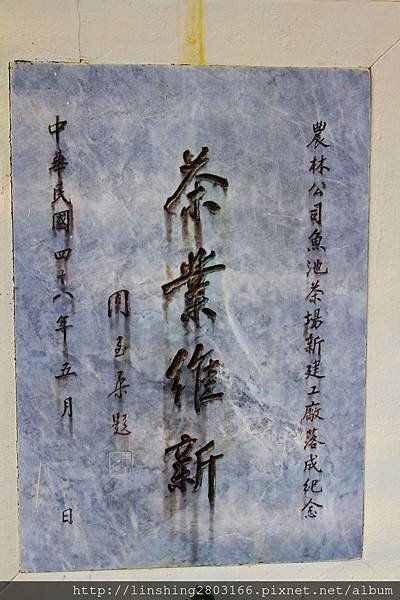 農林公司魚池茶場新建工廠落成紀念
茶業維新
周至柔題
中華民國四十八年五月 日
http://linshing2803166.pixnet.net/album